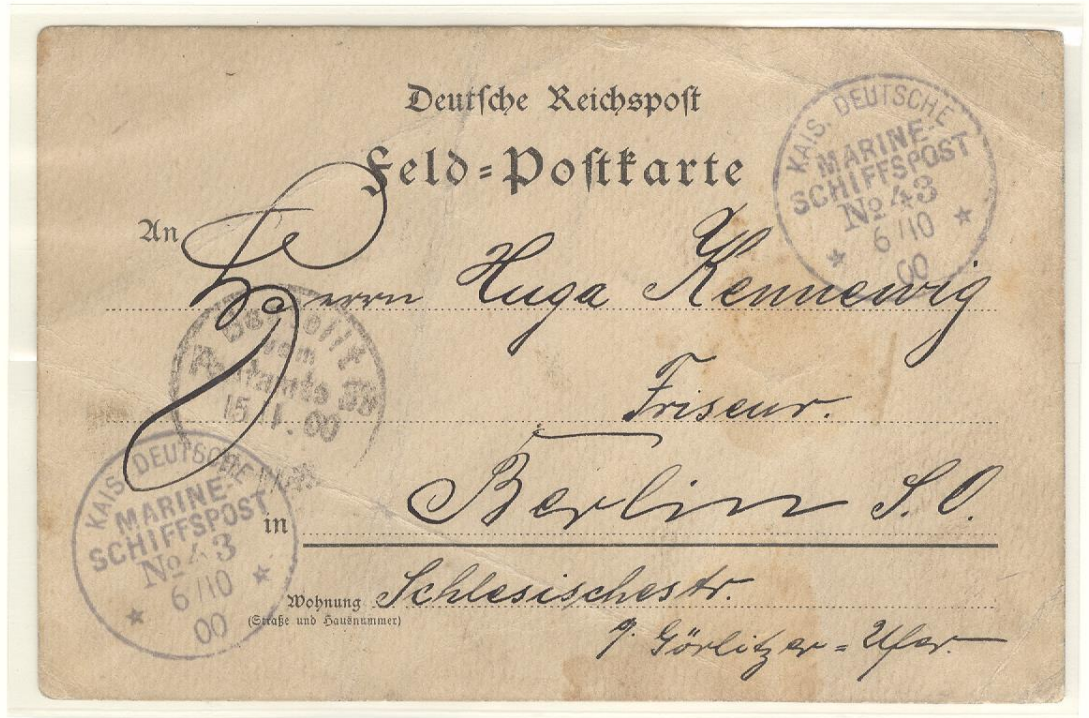 Deutsche Reichspost
Feld=Postkarte
KAIS. DEUTSCHE
MARINE-
SCHIFFSPOST
No 43
6/10
00
An
Herrn Hugo Kennewig
Bestellt
vom
Postamte
15. 11. 00
Friseur.
Berlin S.O.
in
KAIS. DEUTSCHE
MARINE-
SCHIFFSPOST
No 43
6/10
00
Wohnung Schlesischestr.
(Straße und Hausnummer)
Görlitzer=Ufer.